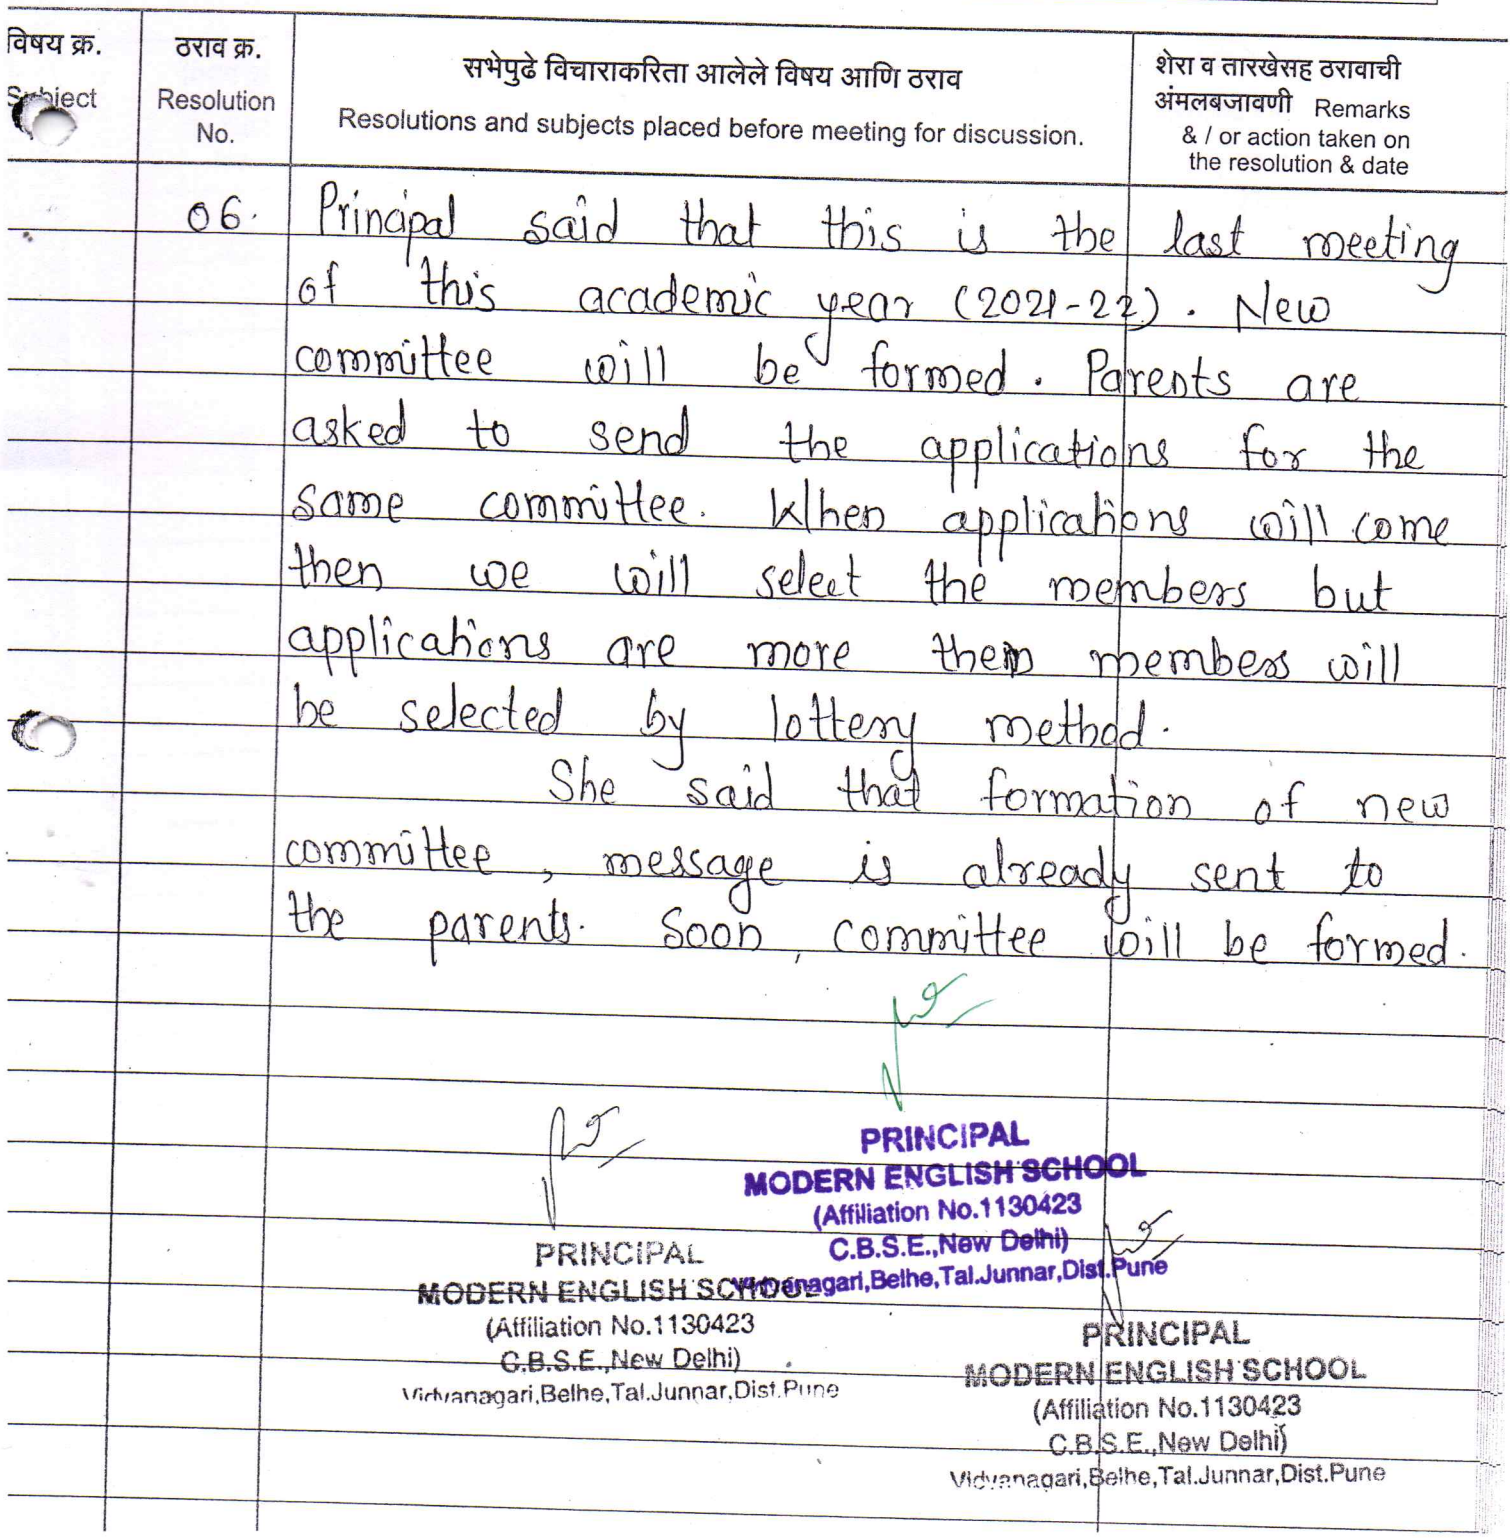 विषय क्र.
Subject
ठराव क्र.
Resolution
No.
सभेपुढे विचाराकरिता आलेले विषय आणि ठराव
Resolutions and subjects placed before meeting for discussion.
शेरा व तारखेसह ठरावाची
अंमलबजावणी Remarks
& / or action taken on
the resolution & date
06. Principal said that this is the last meeting
of this academic year (2021-22). New
committee will be formed. Parents are
asked to send the applications for the
same committee. When applications will come
then we will select the members but
applications are more then members will
be selected by lottery method.
She said that formation of new
committee, message is already sent to
the parents. Soon, committee will be formed.
PRINCIPAL
MODERN ENGLISH SCHOOL
(Affiliation No.1130423
C.B.S.E.,New Delhi)
Vidyanagari,Belhe,Tal.Junnar,Dist.Pune
PRINCIPAL
MODERN ENGLISH SCHOOL
(Affiliation No.1130423
C.B.S.E.,New Delhi)
Vidyanagari,Belhe,Tal.Junnar,Dist.Pune
PRINCIPAL
MODERN ENGLISH SCHOOL
(Affiliation No.1130423
C.B.S.E.,New Delhi)
Vidyanagari,Belhe,Tal.Junnar,Dist.Pune